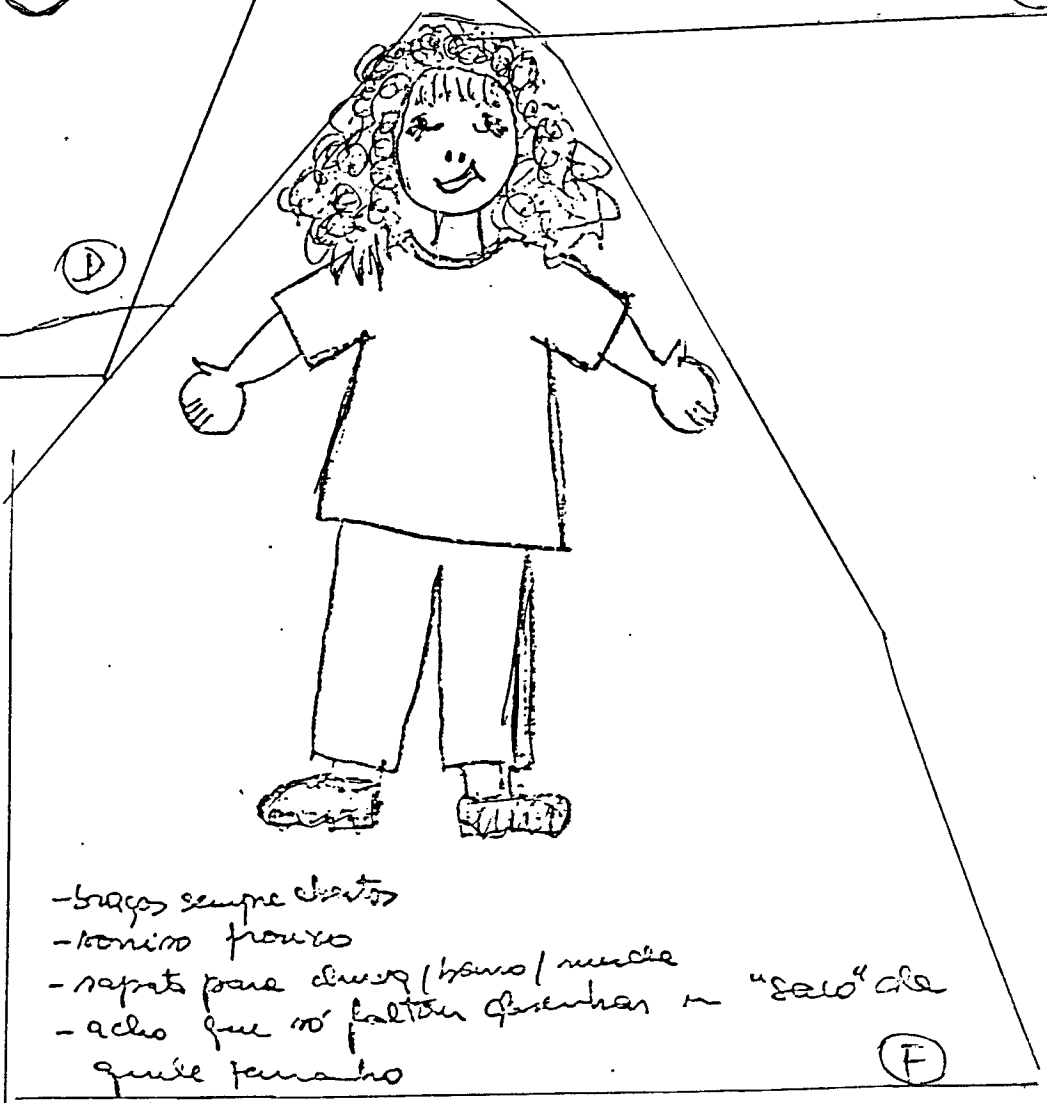 D
-braços sempre abertos
-sorriso frouxo
-sapato para chuva/barro/
-acho que só faltou desenhar "saco" de
F